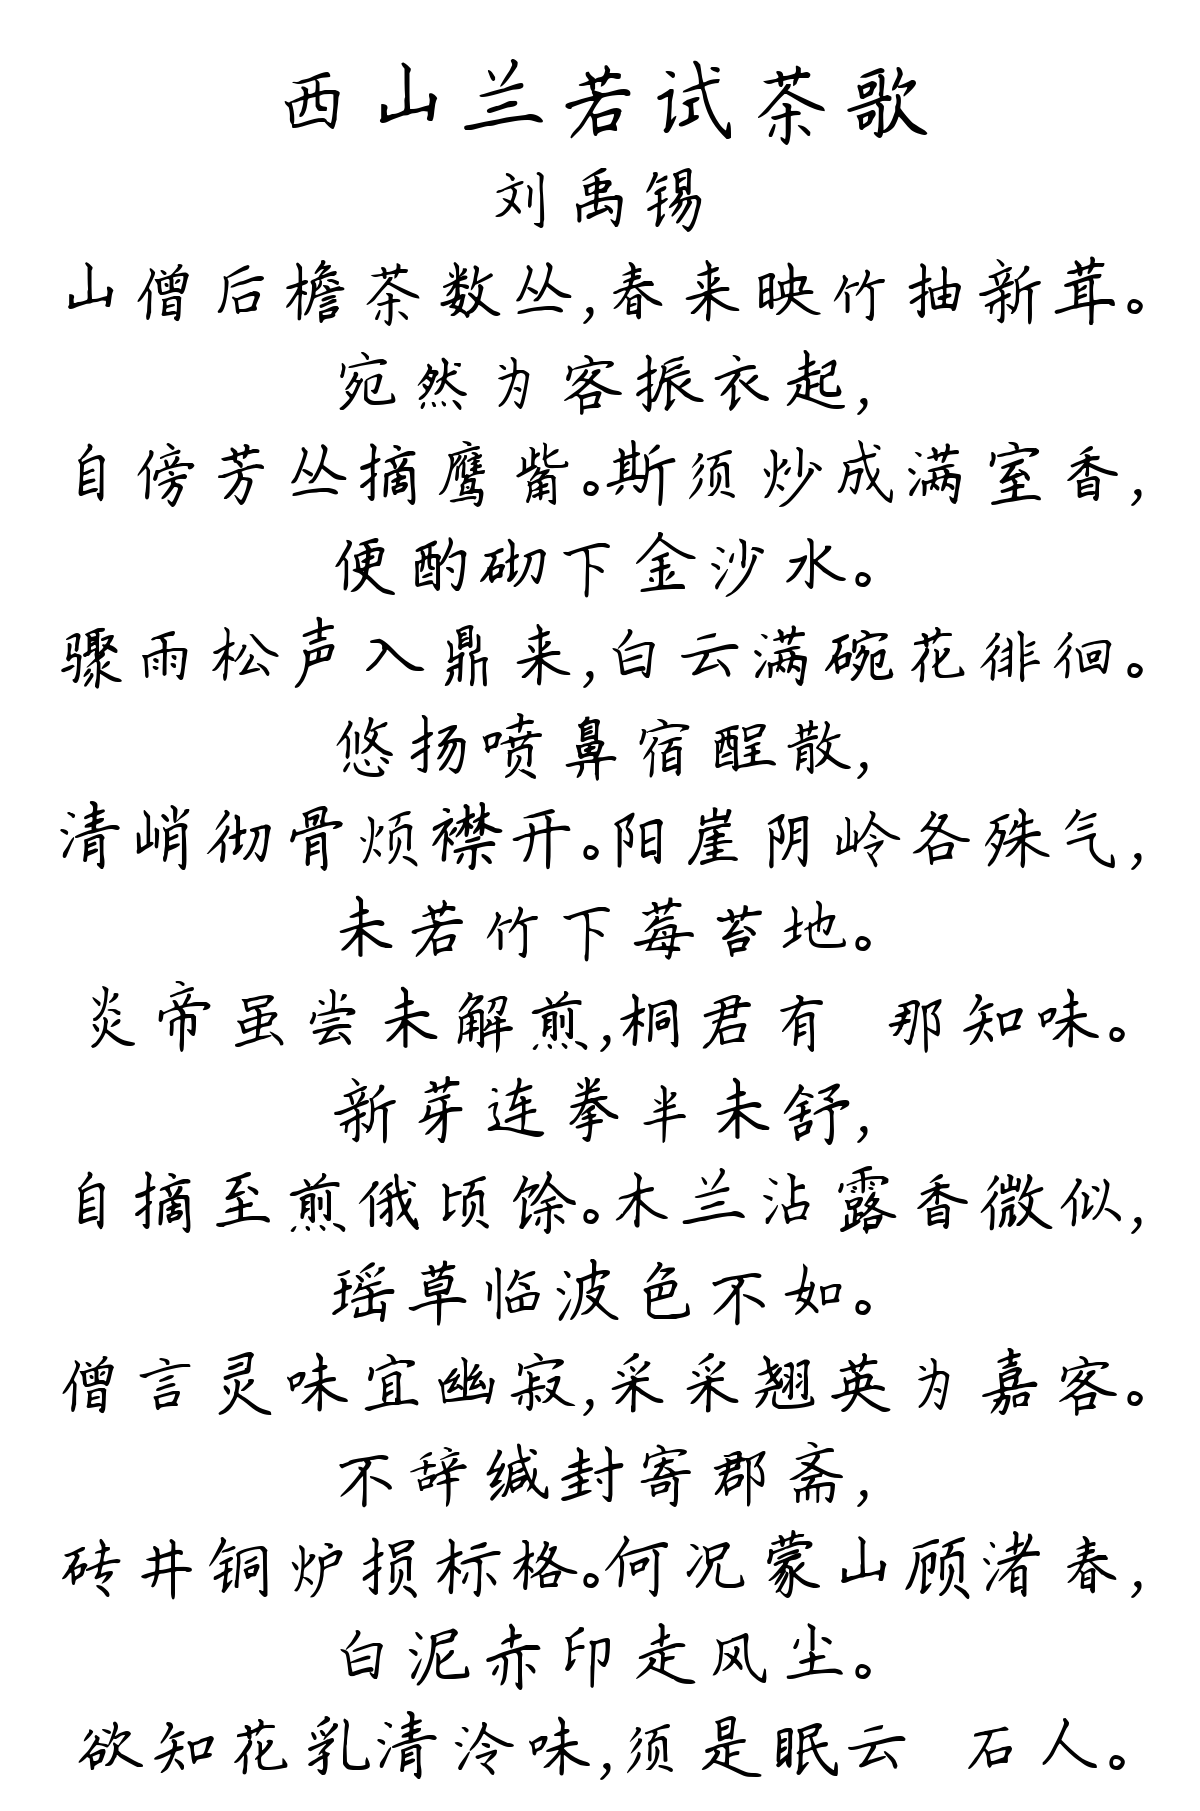 西山兰若试茶歌
刘禹锡
山僧后檐茶数丛,春来映竹抽新茸。
宛然为客振衣起,
自傍芳丛摘鹰觜。斯须炒成满室香,
便酌砌下金沙水。
骤雨松声入鼎来,白云满碗花徘徊。
悠扬喷鼻宿酲散,
清峭彻骨烦襟开。阳崖阴岭各殊气,
未若竹下莓苔地。
炎帝虽尝未解煎,桐君有 那知味。
新芽连拳半未舒,
自摘至煎俄顷馀。木兰沾露香微似,
瑶草临波色不如。
僧言灵味宜幽寂,采采翘英为嘉客。
不辞缄封寄郡斋,
砖井铜炉损标格。何况蒙山顾渚春,
白泥赤印走风尘。
欲知花乳清泠味,须是眠云 石人。